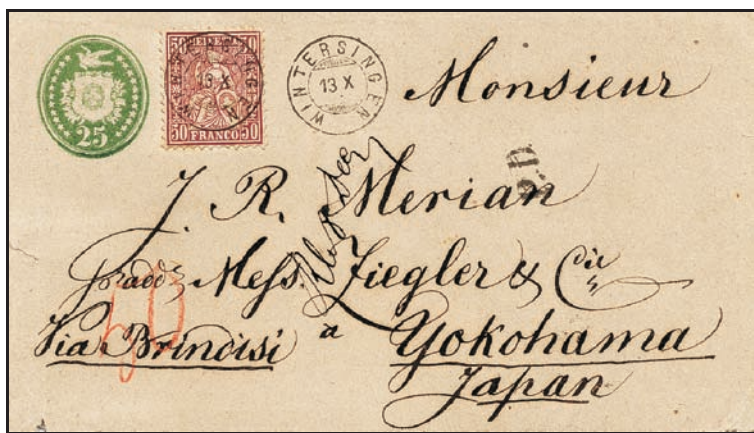 25
50 50
FRANCO
50 50
WINTERSINGEN
13 X
WINTERSINGEN
13 X
Monsieur
P.D.
J. R. Merian
Mess. Ziegler & Cie
60
Via Brindisi
a Yokohama
Japan